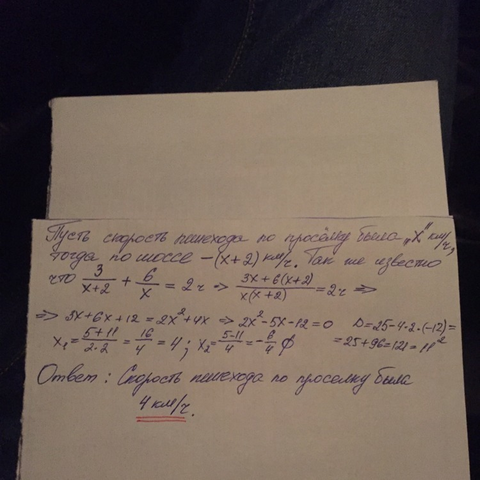 Пусть скорость пешехода по просёлку была „x" км/ч,
тогда по шоссе – (x+2) км/ч. Так же известно
что 3/(x+2) + 6/x = 2ч => (3x+6(x+2))/(x(x+2)) = 2ч =>
=> 3x+6x+12 = 2x²+4x => 2x²-5x-12=0 D=25-4·2·(-12)=
x₁ = (5+11)/(2·2) = 16/4 = 4; x₂ = (5-11)/4 = -6/4 ∅ =25+96=121=11²
Ответ: Скорость пешехода по проселку была
4 км/ч.